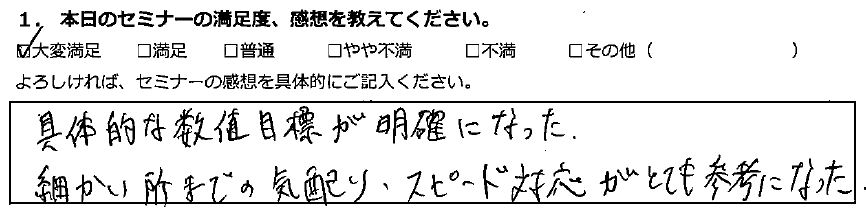 1. 本日のセミナーの満足度、感想を教えてください。
☑大変満足 □満足 □普通 □やや不満 □不満 □その他（ ）
よろしければ、セミナーの感想を具体的にご記入ください。
具体的な数値目標が明確になった.
細かい所までの気配り、スピード対応がとても参考になった.